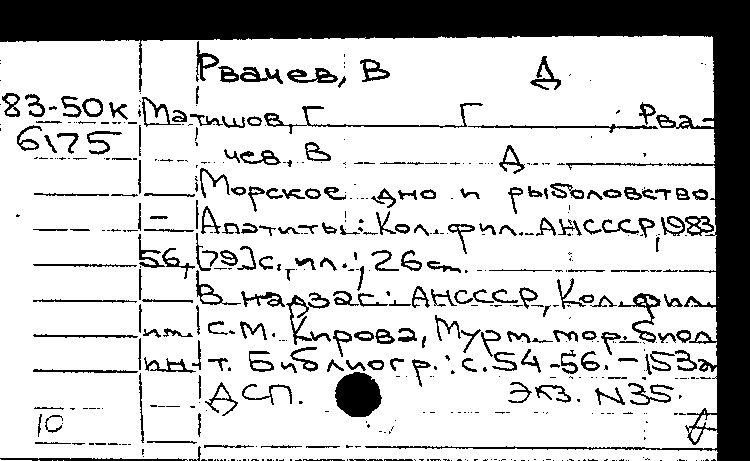 Рвачев, В Д
83-50к Матишов, Г Г ; Рва-
6175 чев, В Д
Морское дно и рыболовство.
- Апатиты: Кол. фил. АН СССР, 1983
56, [79] с., ил.; 26 см.
В надзаг.: АН СССР, Кол. фил.
им. С.М. Кирова, Мурм. мор. биол
ин-т. Библиогр.: с. 54-56. - 153
ДСП. Экз. N35.
10